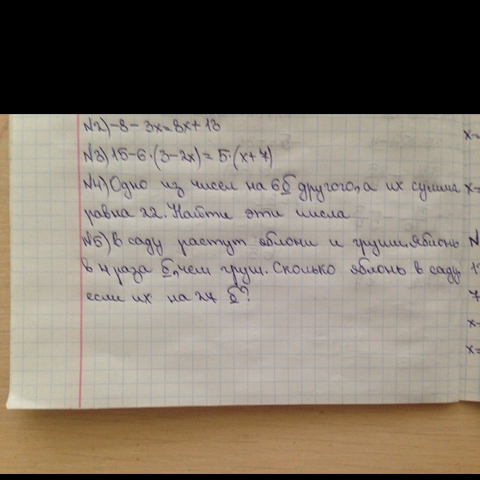 №2) -8 - 3x = 8x + 13
№3) 15 - 6·(3 - 2x) = 5·(x + 7)
№4) Одно из чисел на 6 б другого, а их сумма
равна 22. Найти эти числа
№5) В саду растут яблони и груши. Яблонь
в 4 раза б, чем груш. Сколько яблонь в саду,
если их на 27 б?
x=
x=
№
7
x=
x=